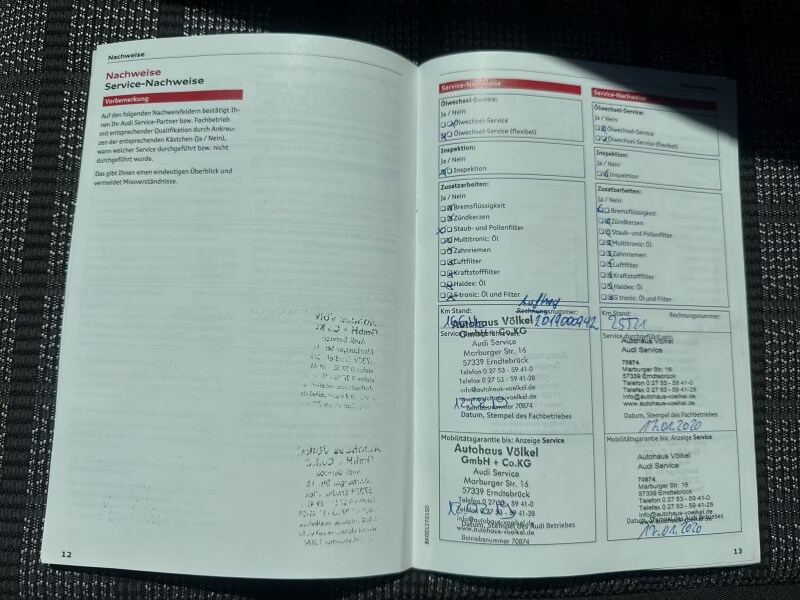 Nachweise
Nachweise
Service-Nachweise
Vorbemerkung
Auf den folgenden Nachweisfeldern bestätigt Ih-
nen Ihr Audi Service-Partner bzw. Fachbetrieb
mit entsprechender Qualifikation durch Ankreu-
zen der entsprechenden Kästchen (Ja / Nein),
wann welcher Service durchgeführt bzw. nicht
durchgeführt wurde.
Das gibt Ihnen einen eindeutigen Überblick und
vermeidet Missverständnisse.
12
Service-Nachweise
Ölwechsel-Service:
Ja / Nein
Ölwechsel-Service
Ölwechsel-Service (flexibel)
Inspektion:
Ja / Nein
Inspektion
Zusatzarbeiten:
Ja / Nein
Bremsflüssigkeit
Zündkerzen
Staub- und Pollenfilter
Multitronic: Öl
Zahnriemen
Luftfilter
Kraftstofffilter
Haldex: Öl
S tronic: Öl und Filter
Auftrag
Km Stand: Rechnungsnummer:
2019000942
Autohaus Völkel
GmbH + Co.KG
Audi Service
Marburger Str. 16
57339 Erndtebrück
Telefon 0 27 53 - 59 41-0
Telefax 0 27 53 - 59 41-28
info@autohaus-voelkel.de
Betriebsnummer 70874
Datum, Stempel des Fachbetriebes
Mobilitätsgarantie bis: Anzeige Service
Autohaus Völkel
GmbH + Co.KG
Audi Service
Marburger Str. 16
57339 Erndtebrück
Telefon 0 27 53 - 59 41-0
Telefax 0 27 53 - 59 41-28
info@autohaus-voelkel.de
Datum, Stempel des Audi Betriebes
Betriebsnummer 70874
Service-Nachweise
Ölwechsel-Service:
Ja / Nein
Ölwechsel-Service
Ölwechsel-Service (flexibel)
Inspektion:
Ja / Nein
Inspektion
Zusatzarbeiten:
Ja / Nein
Bremsflüssigkeit
Zündkerzen
Staub- und Pollenfilter
Multitronic: Öl
Zahnriemen
Luftfilter
Kraftstofffilter
Haldex: Öl
S tronic: Öl und Filter
Km Stand: Rechnungsnummer:
25521
Service durchgeführt von:
Autohaus Völkel
Audi Service
70874
Marburger Str. 16
57339 Erndtebrück
Telefon 0 27 53 - 59 41-0
Telefax 0 27 53 - 59 41-28
info@autohaus-voelkel.de
www.autohaus-voelkel.de
Datum, Stempel des Fachbetriebes
17.01.2020
Mobilitätsgarantie bis: Anzeige Service
Autohaus Völkel
Audi Service
70874
Marburger Str. 16
57339 Erndtebrück
Telefon 0 27 53 - 59 41-0
Telefax 0 27 53 - 59 41-28
info@autohaus-voelkel.de
Datum, Stempel des Audi Betriebes
www.autohaus-voelkel.de
17.01.2020
13